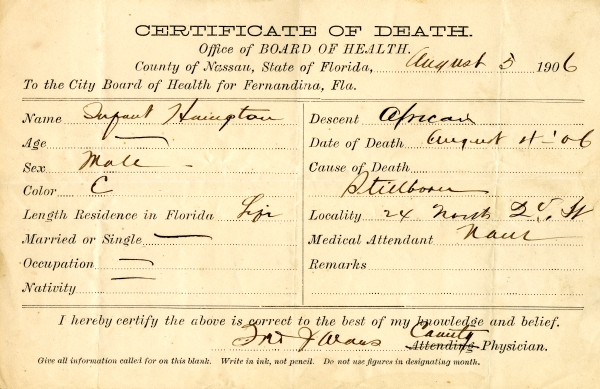 CERTIFICATE OF DEATH.
Office of BOARD OF HEALTH.
County of Nassau, State of Florida, August 5 1906
To the City Board of Health for Fernandina, Fla.
Name Infant
Age —
Sex Male
Color C
Length Residence in Florida Life
Married or Single —
Occupation —
Nativity —
Descent African
Date of Death August 4th 06
Cause of Death
Stillborn
Locality 24 North St
Medical Attendant None
Remarks
I hereby certify the above is correct to the best of my knowledge and belief.
County
Attending Physician.
Give all information called for on this blank. Write in ink, not pencil. Do not use figures in designating month.